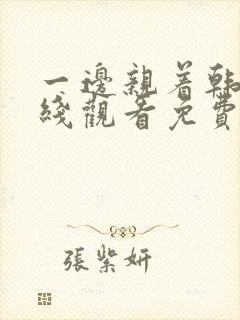 一邊親着韩
綫觀看免費
張紫妍